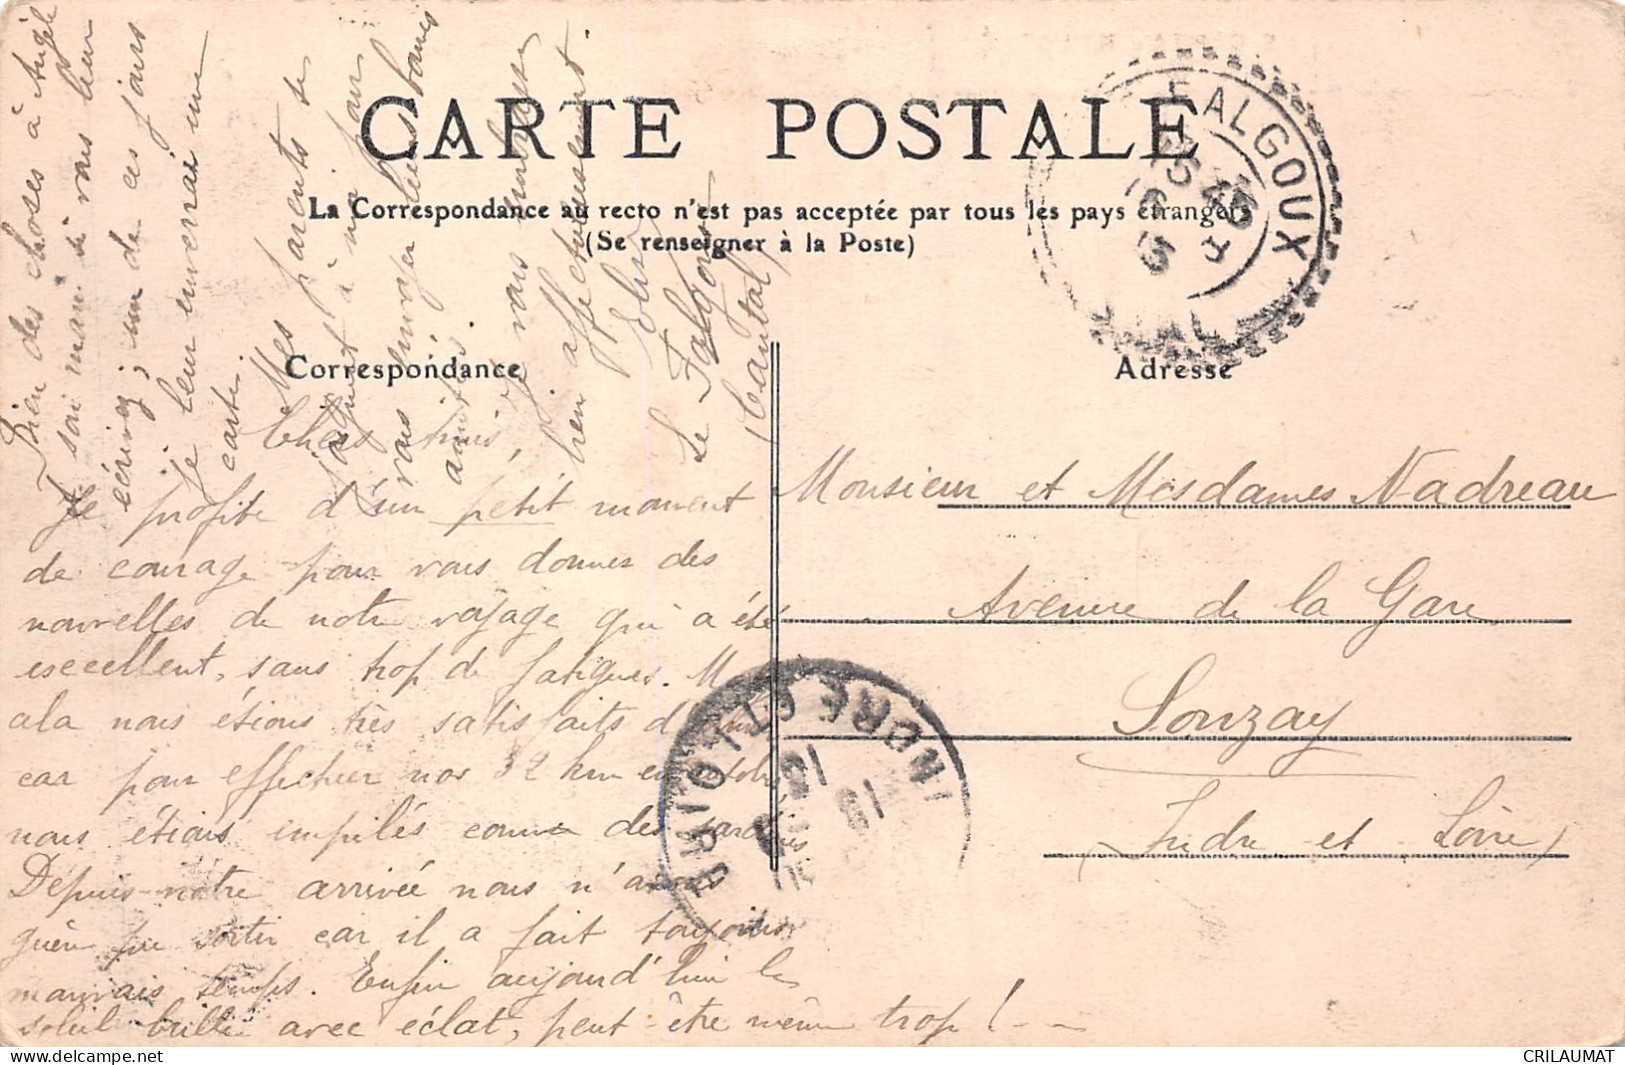 CARTE POSTALE
La Correspondance au recto n'est pas acceptée par tous les pays étrangers
(Se renseigner à la Poste)
Correspondance
Adresse
FALGOUX
Chers amis,
Je profite d'un petit moment
de courage pour vous donner des
nouvelles de notre voyage qui a été
excellent, sans trop de fatigues.
cela nous étions très satisfaits
car pour effectuer nos 32 km en
nous étions empilés comme des sardines
Depuis notre arrivée nous n'avons
guère pu sortir car il a fait toujours
mauvais temps. Enfin aujourd'hui le
soleil brille avec éclat, peut-être même trop !--
Mes parents se
joignent à moi pour
vous envoyer leurs bonnes
amitiés
je vous embrasse
bien affectueusement
Le Falgoux
(Cantal)
Bien des choses à Angèle
et son mari si vous leur
écrivez ; un de ces jours
je leur enverrai une
carte.
Monsieur et Mesdames Nadreau
Avenue de la Gare
Sonzay
(Indre et Loire)
INDRE ET LOIRE
CRILAUMAT